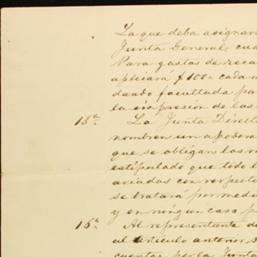 La que deba asignar
Junta General, cua
Para gastos de reca
aplicará $100= cada m
dando facultada pa
la impresión de las
15ª La Junta Direct
nombren un apodera
que se obligan los
estipulado que todo l
aciados con respecto
se tratará por med
y en ningun caso p
16ª Al representante d
al artículo anterior, s
cuentas por la Junta